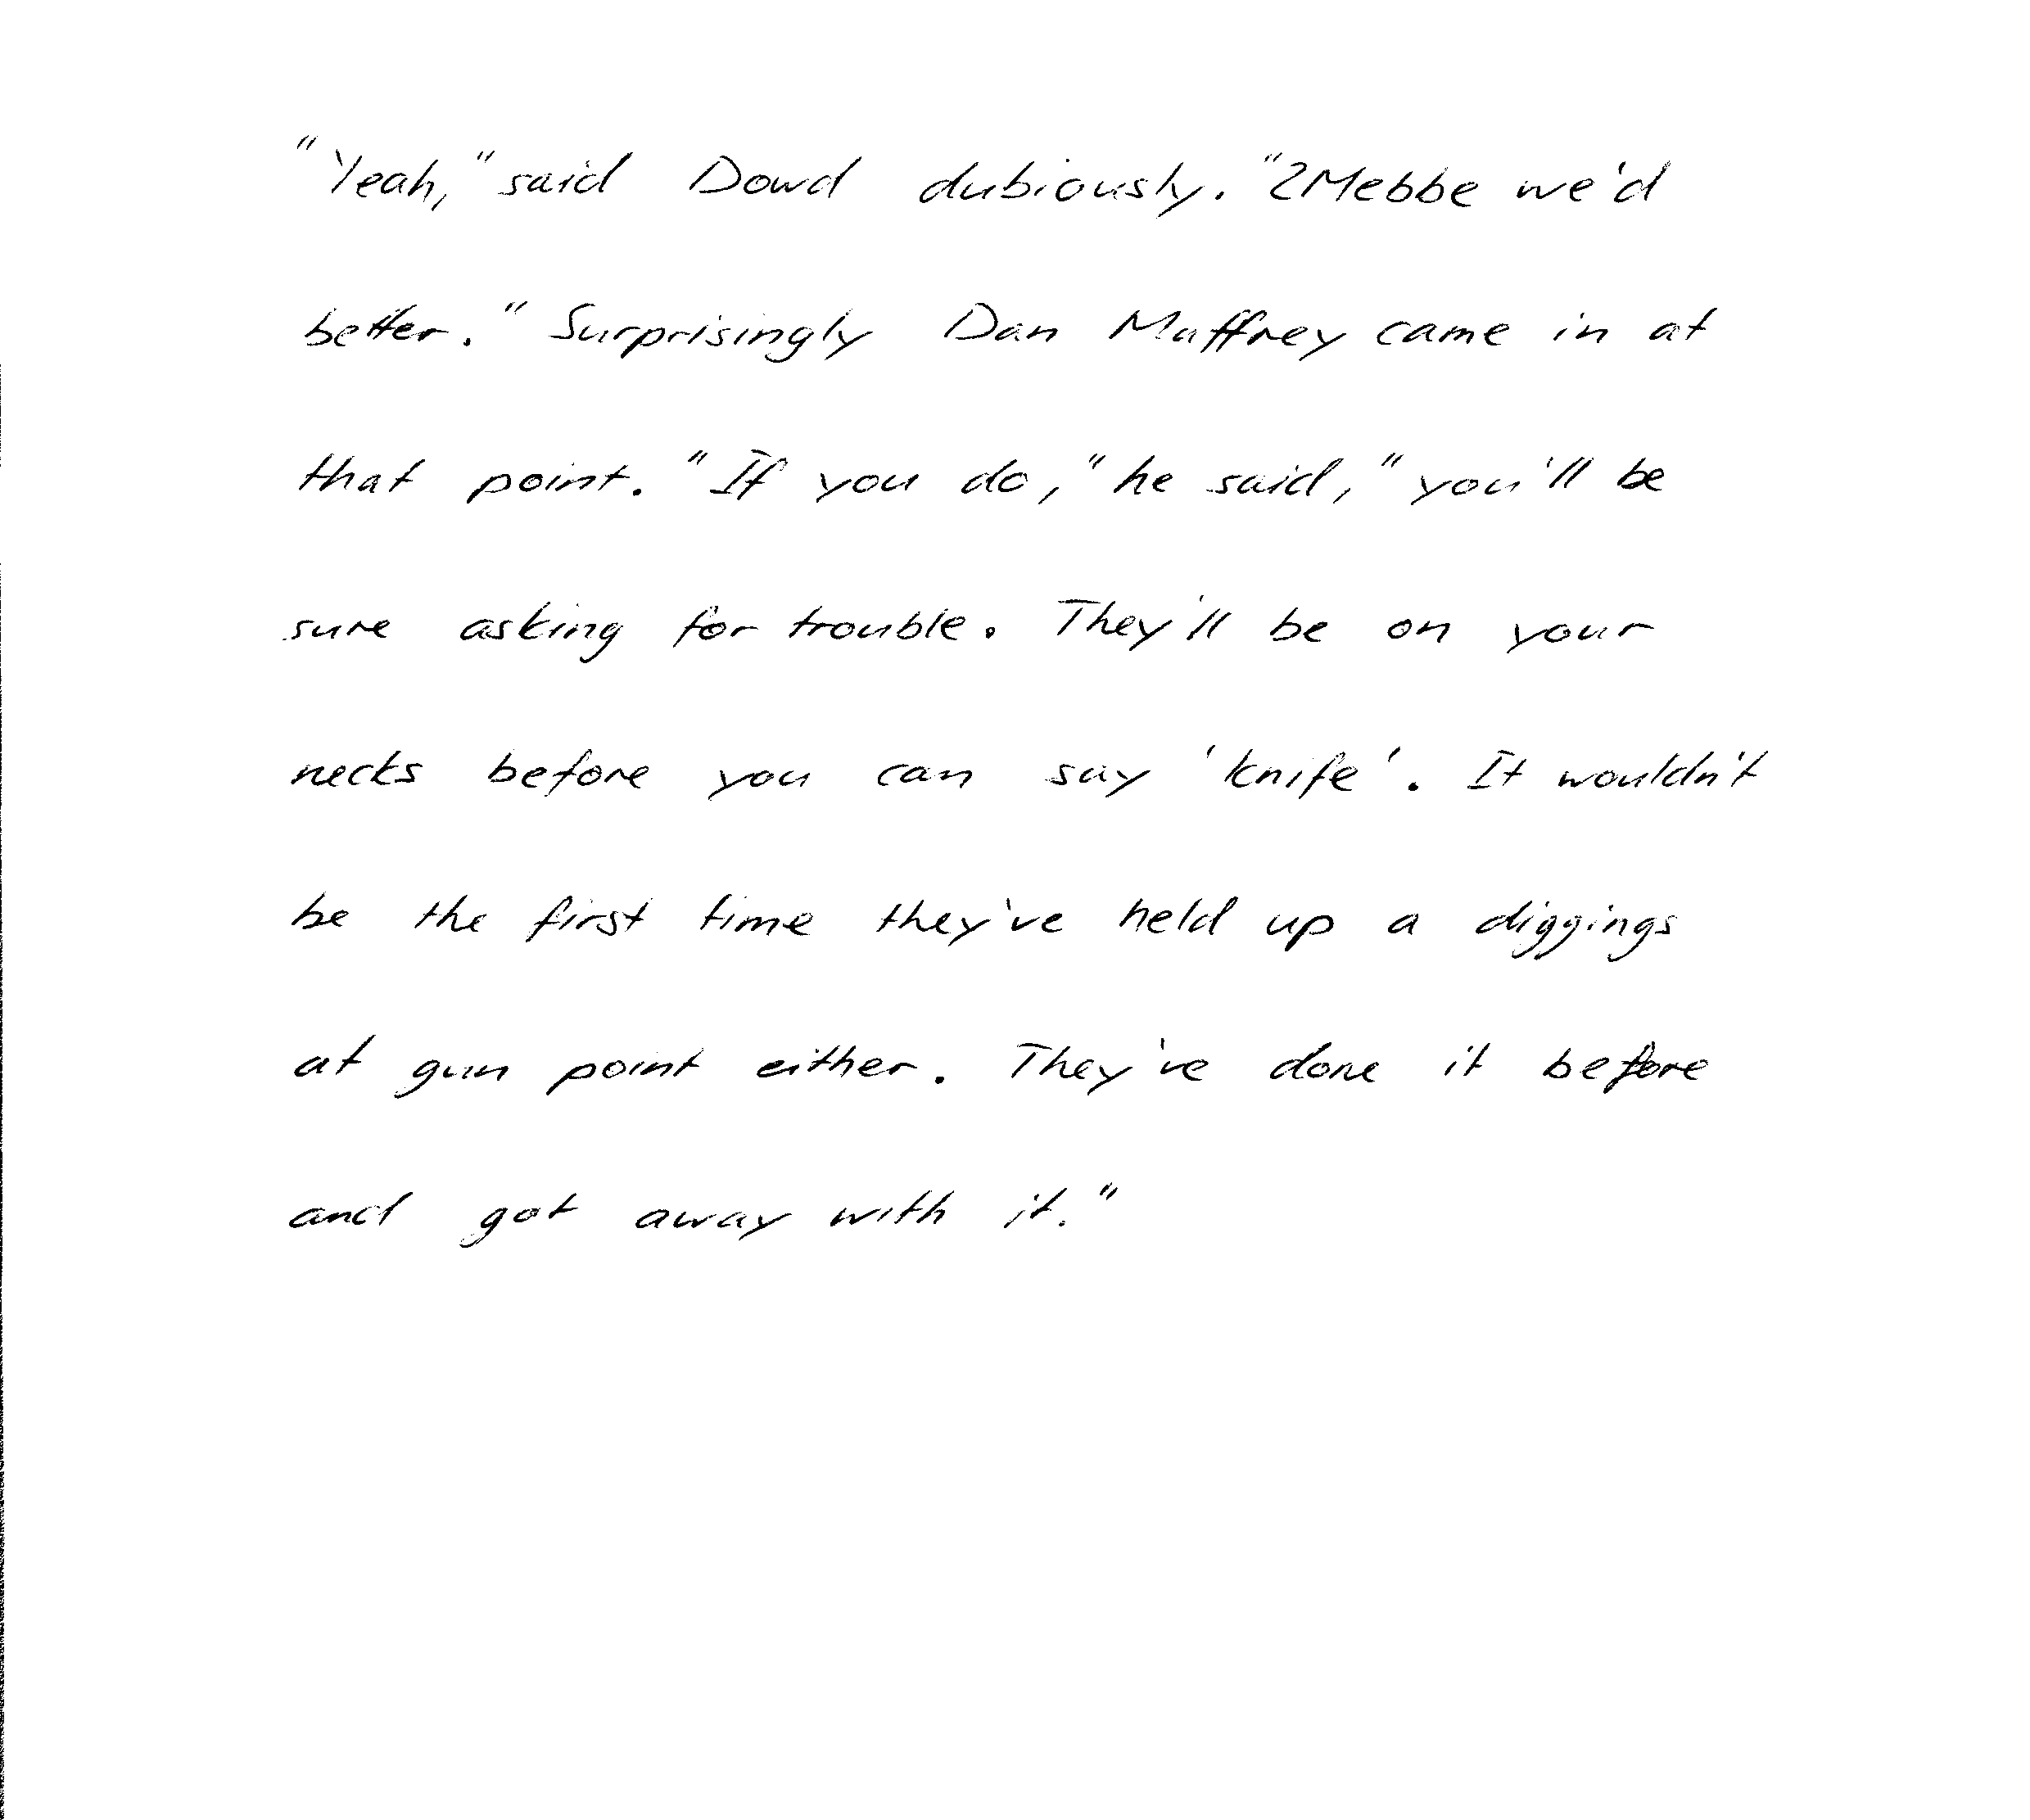 "Yeah," said Dowd dubiously. "2Mebbe we'd
better." Surprisingly Dan Maffrey came in at
that point. "If you do," he said, "you'll be
sure asking for trouble. They'll be on your
necks before you can say 'knife'. It wouldn't
be the first time they've held up a diggings
at gun point either. They've done it before
and got away with it."